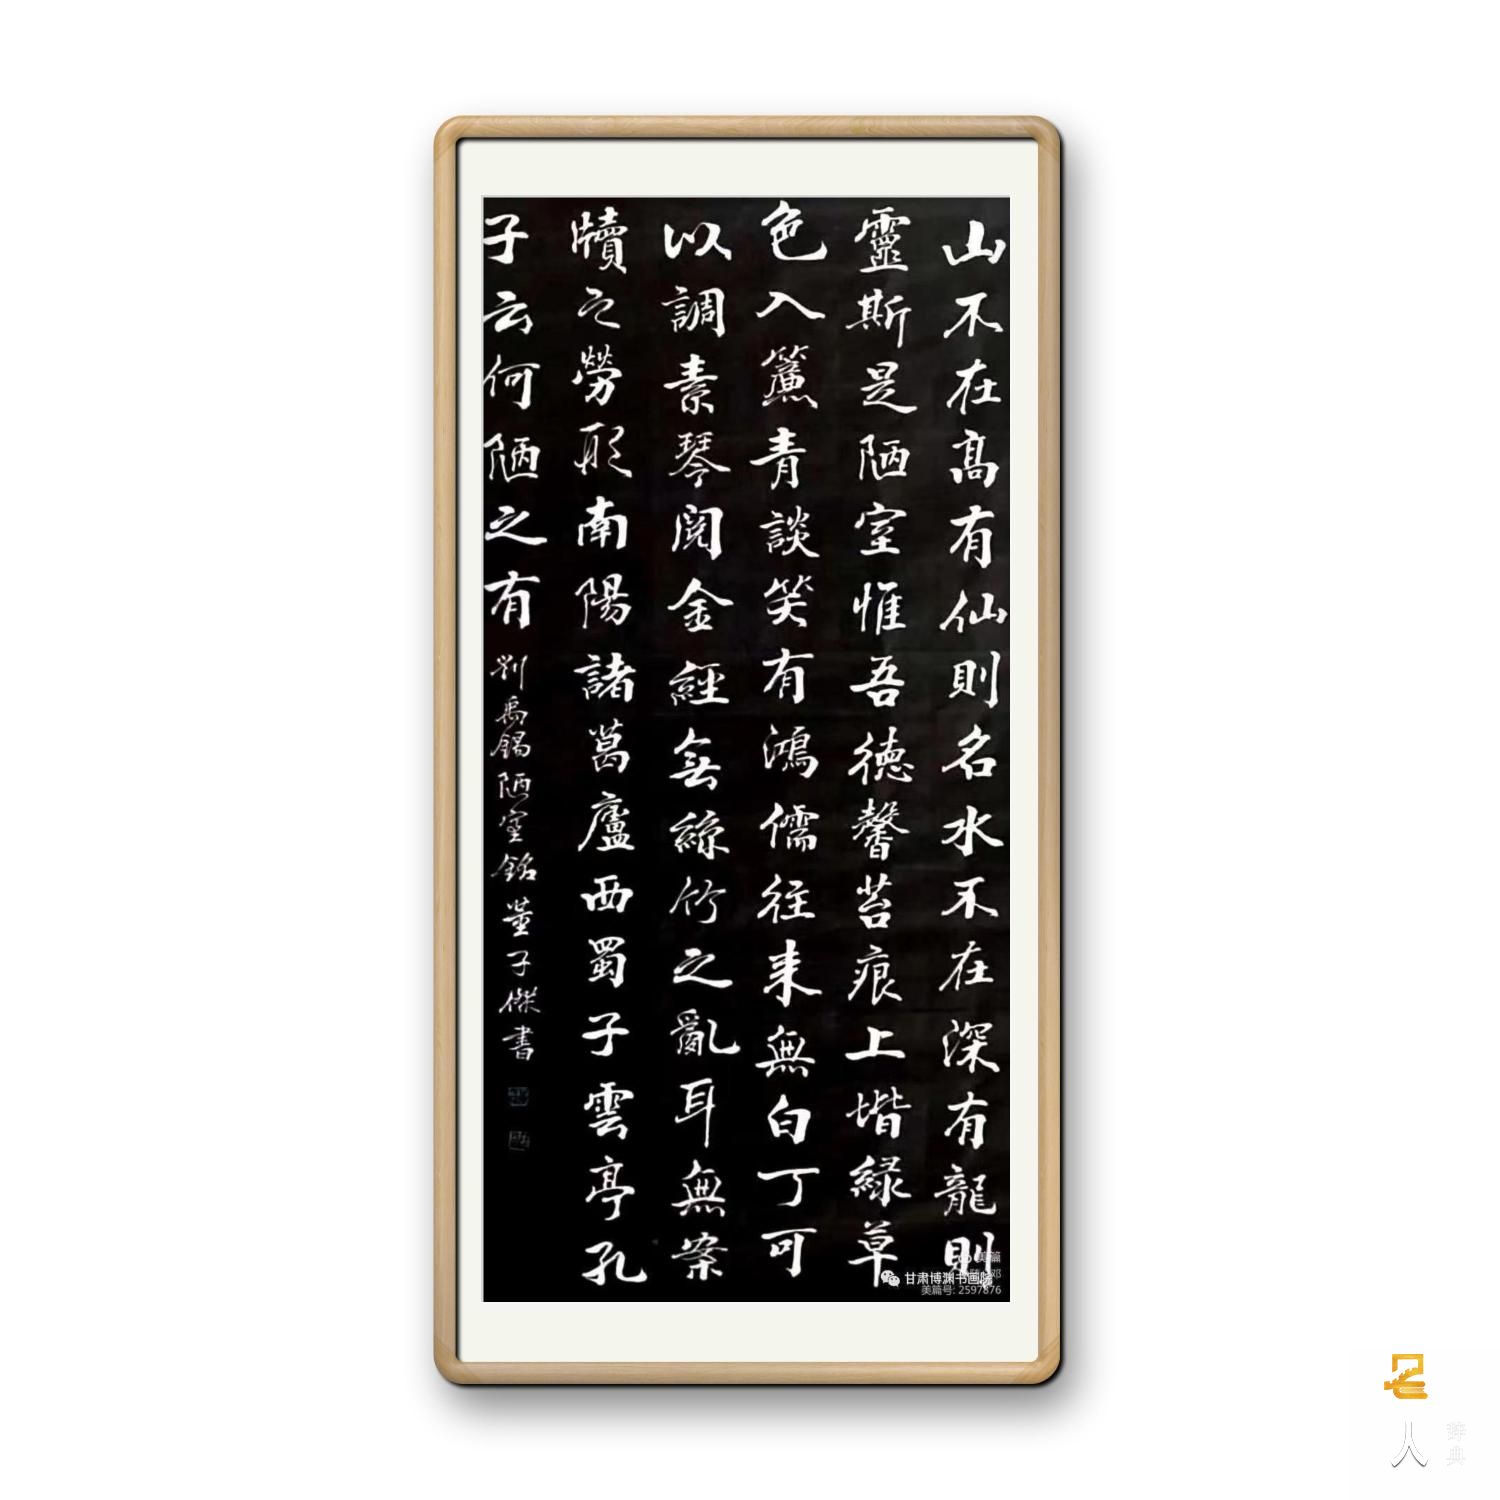 山不在高有仙則名水不在深有龍則
靈斯是陋室惟吾德馨苔痕上堦緑草
色入簾青談笑有鴻儒往来無白丁可
以調素琴閱金經無絲竹之亂耳無案
牘之勞形南陽諸葛廬西蜀子雲亭孔
子云何陋之有
劉禹錫陋室銘董子傑書
美篇
甘肃博渊书画院
美篇号: 2597876
名
人
辞典